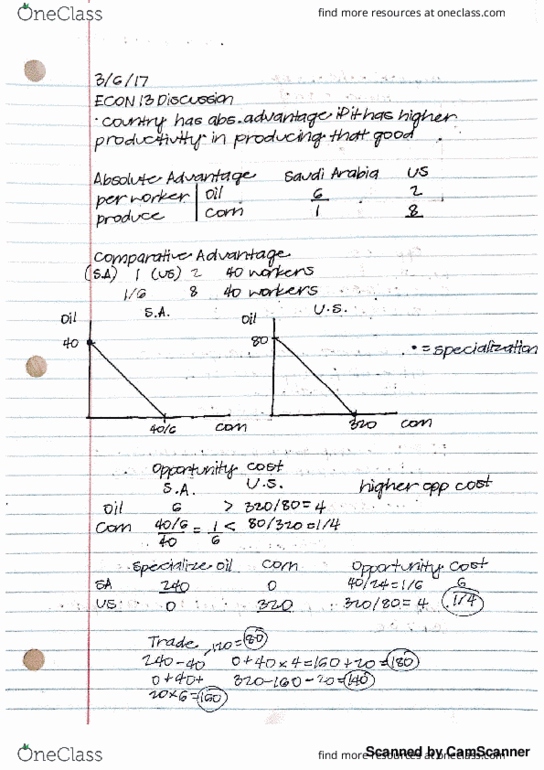 OneClass find more resources at oneclass.com
3/6/17
ECON 13 Discussion
· country has abs. advantage if it has higher
productivity in producing that good
Absolute Advantage Saudi Arabia US
per worker oil 6 2
produce corn 1 8
Comparative Advantage
(SA) 1 (US) 2 40 workers
1/6 8 40 workers
S.A. U.S.
Oil Oil
40 80 • = specialization
40/6 corn 320 corn
Opportunity Cost
S.A. U.S. higher opp cost
Oil 6 > 320/80 = 4
Corn 40/6 / 40 = 1/6 < 80/320 = 1/4
Specialize Oil Corn Opportunity Cost
SA 240 0 40/24 = 1/6 6
US 0 320 320/80 = 4 1/4
Trade 120 = 80
240 - 40 0 + 40 × 4 = 160 + 20 = 180
0 + 40 + 320 - 160 - 20 = 140
20 × 6 = 160
Scanned by CamScanner
OneClass find more resources at oneclass.com